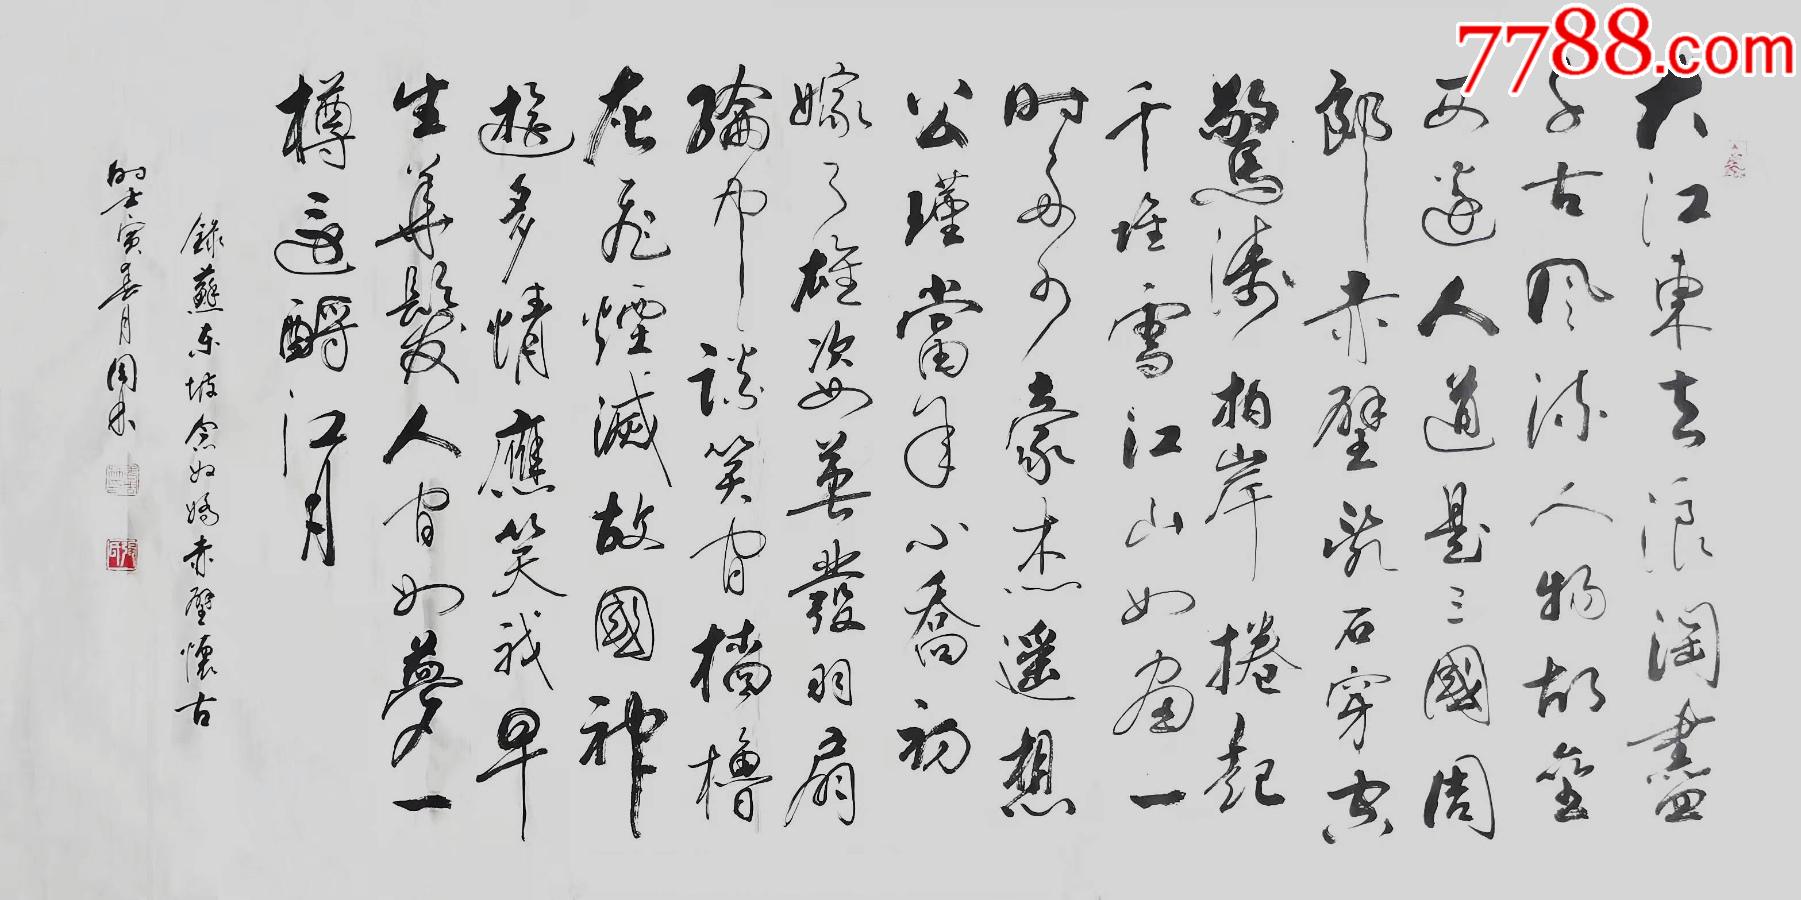 7788.com
大江東去浪淘盡
千古風流人物故壘
西邊人道是三國周
郎赤壁亂石穿空
驚濤拍岸捲起
千堆雪江山如畫一
時多少豪杰遥想
公瑾當年小喬初
嫁了雄姿英發羽扇
綸巾談笑間檣櫓
灰飛煙滅故國神
遊多情應笑我早
生華髮人間如夢一
樽還酹江月
錄蘇東坡念奴嬌赤壁懷古
時壬寅春月周